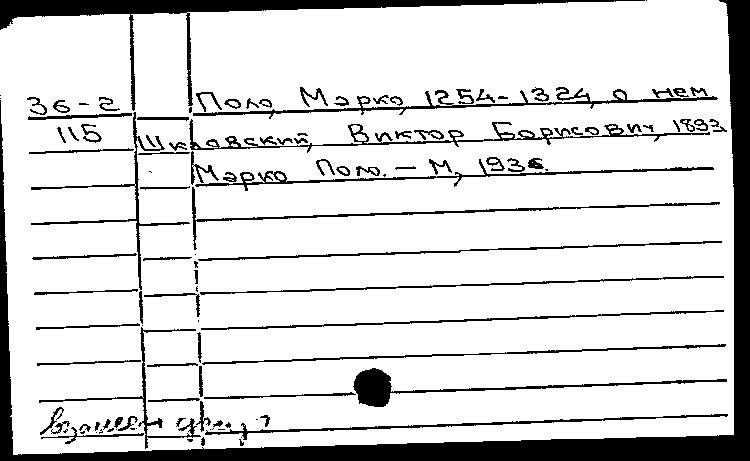 36-2 Поло, Марко, 1254-1324, о нем
115 Шкловский, Виктор Борисович, 1893
Марко Поло. - М., 1936.
взамен